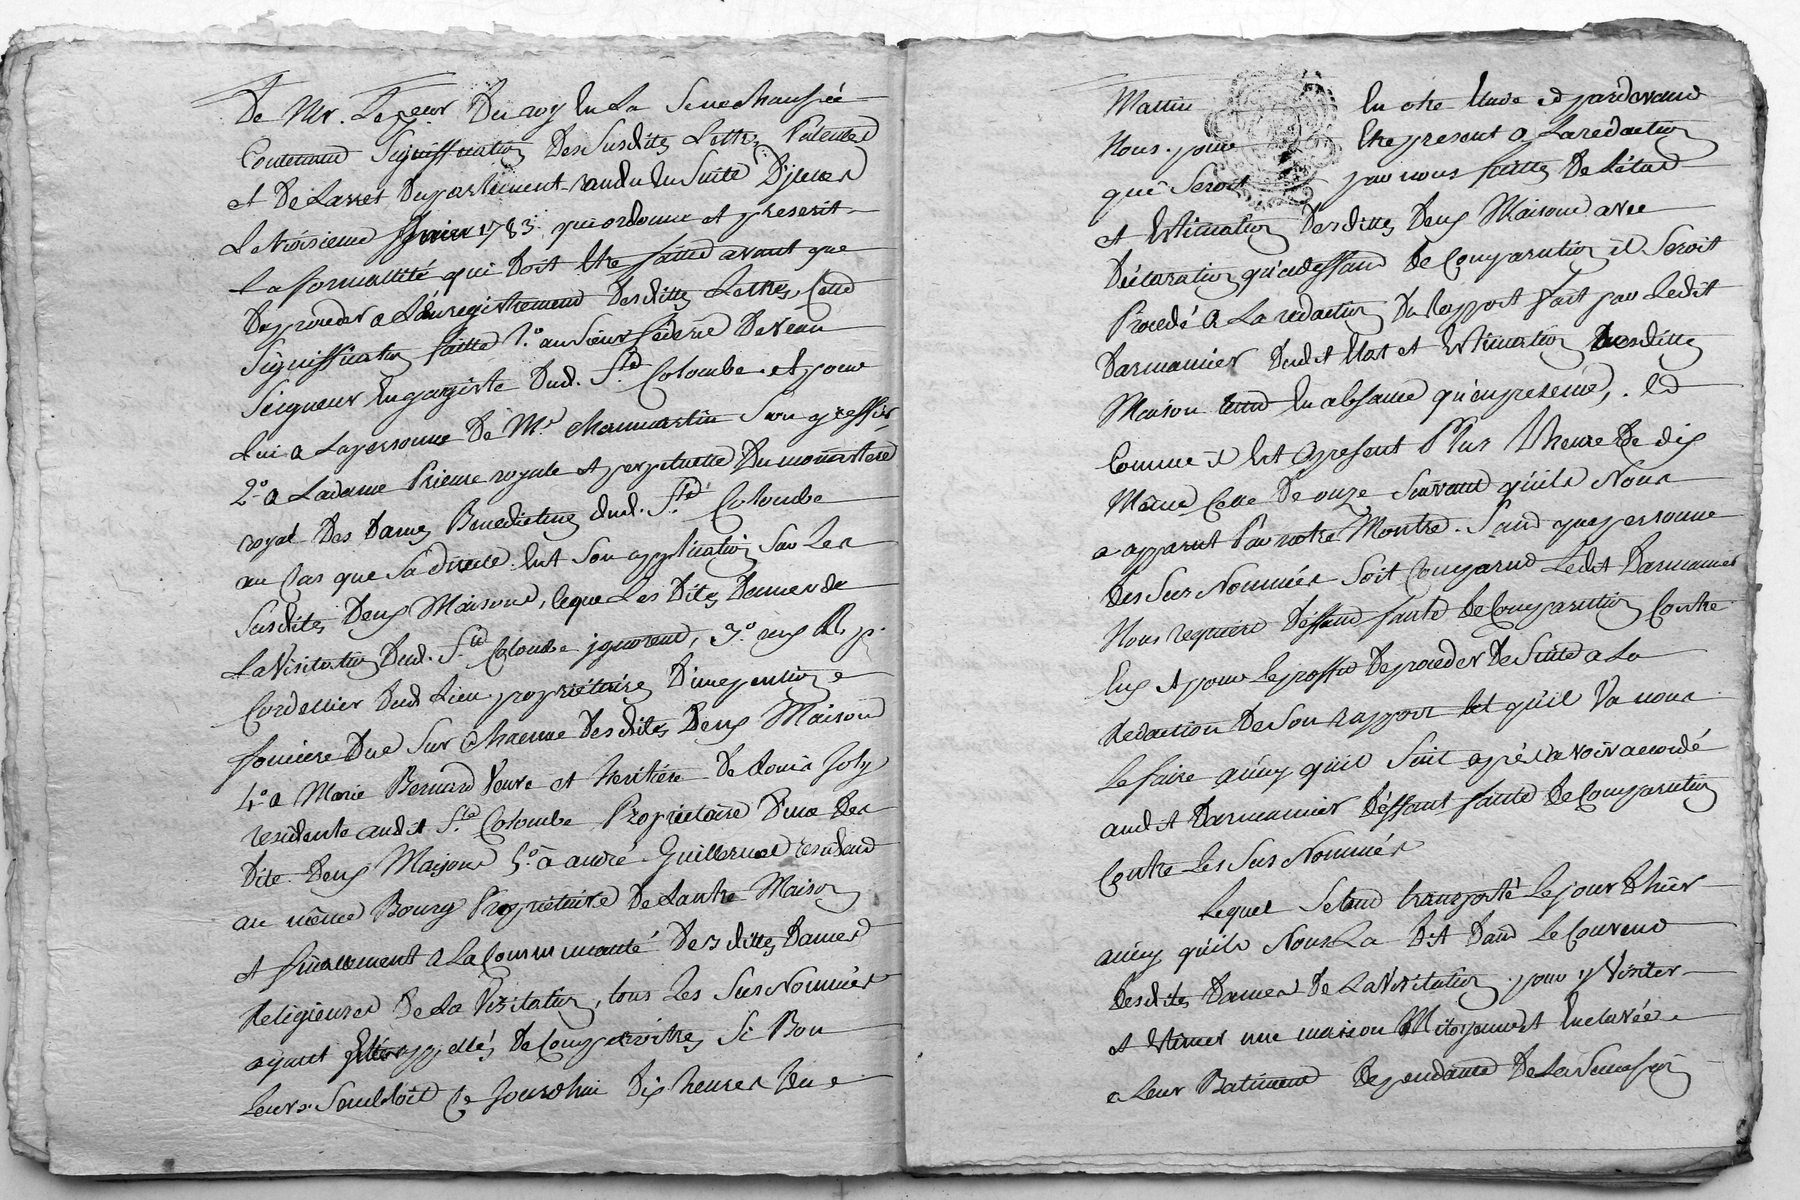 De Mr. Le peur Du roy En La Senechaussée
Contenant Signiffication Des Susdites Lettres Patentes
et De Larret Du parlement randu En Suitte D'jcelles
Le troisieme 1783. que ordonne et prescrit
La formallité qui Doit Etre faitte avant que
De proceder a L'Enregistrement Desdittes Lettres, Cette
Signiffication faitte 1.º au Sieur De Veau
Seigneur Engagiste Dud. Ste Colombe et pour
Lui a La personne De Mr. Chanmartin Son greffier
2.º a La dame Prieure royale et perpetuelle Du monastere
royal Des Dames Benedictines dud. Ste Colombe
au Cas que Sa directe Ent Son application Sur Les
Susdites Deux Maisons, ce que Les Dites Dames de
La Visitation Dud. Ste Colombe ignorent, 3.º aux R. p.
Cordellier Dud Lieu propriétaires D'une pention
fonciere Due Sur Chacune Desdites Deux Maisons
4.º a Marie Bernard Veuve et heritiére De Louis Joly
residente audit Ste Colombe Proprietaire D'une Des
Dite Deux Maisons 5.º à andré Guillermet residant
au même Bourg Propriétaire De Lautre Maison
et finallement a La Communauté Desdittes Dames
Religieuses De La Visitation, tous Les Sus Nommés
ayant appellés De Comparoitre Si Bon
Leurs Sembloit Ce Jourdhui Dix heures Du
Matin En otre Etude et pardevant
Nous pour Etre present a La redaction
qui Seroit par nous faitte De L'état
et Estimation Desdittes Deux Maisons avec
Déclaration qu'a deffaut De Comparution il Seroit
Procedé a La redaction Du Rapport fait par Ledit
Darmanier Dudit Etat et Estimation Desdittes
Maison En absance qu'en presence, Et
Comme il Est apresent Plus L'heure De dix
Même Celle De onze Suivant qu'il Nous
a apparut Par notre Montre. Sans que personne
des Sus Nommés Soit Comparus Ledit Darmanier
Nous requiere Déffaut faute De Comparution Contre
Eux et pour Le proffit De proceder De Suitte a La
Redaction De Son rapport et qu'il Va nous
Le faire ainsy qu'il Suit aprés avoir accordé
audit Darmanier Déffaut faute De Comparution
Contre Les Sus Nommés
Lequel Setant transporté Le jour D'hier
ainsy qu'il Nous La Dit Dans Le Couvent
Desdites Dames De La Visitation pour y Visiter
et Estimer une maison Mitoyenne et Enclavée
a Leur Batiment Dependante De La Succession